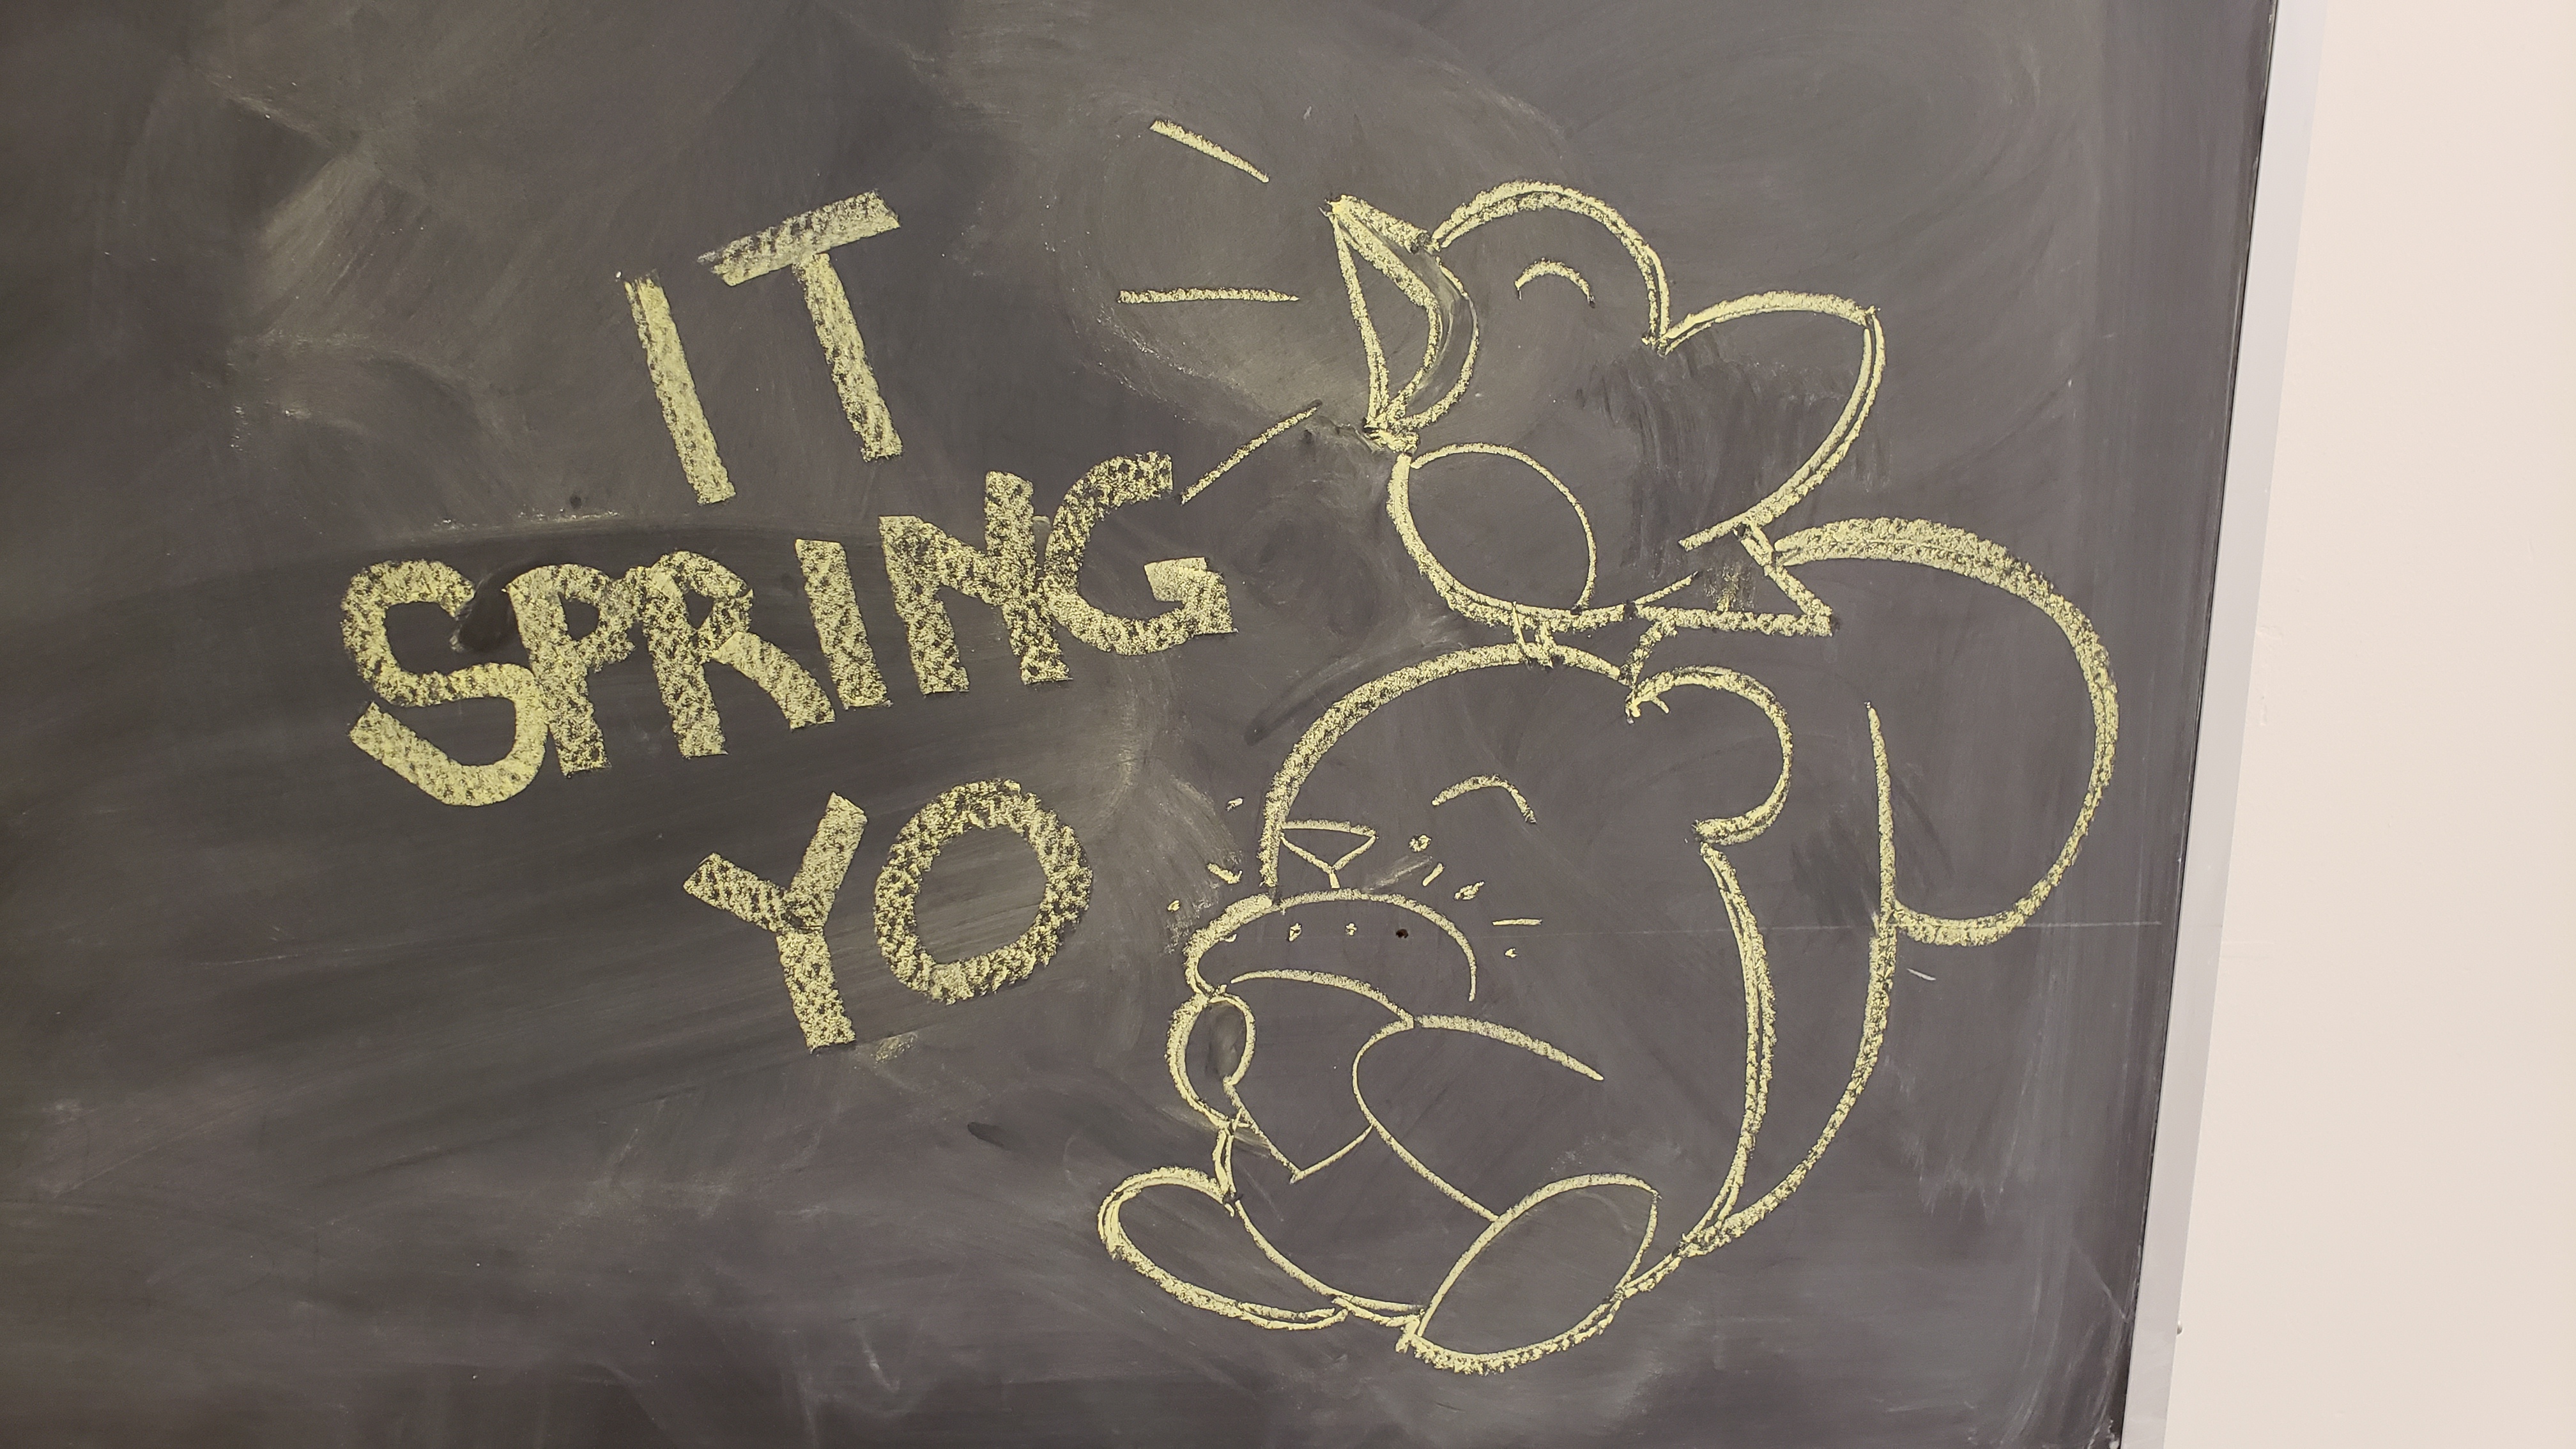 IT
SPRING
YO